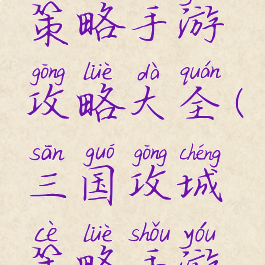 策略手游
gōng lüè dà quán
攻略大全(
sān guó gōng chéng
三国攻城
cè lüè shǒu yóu
策略手游